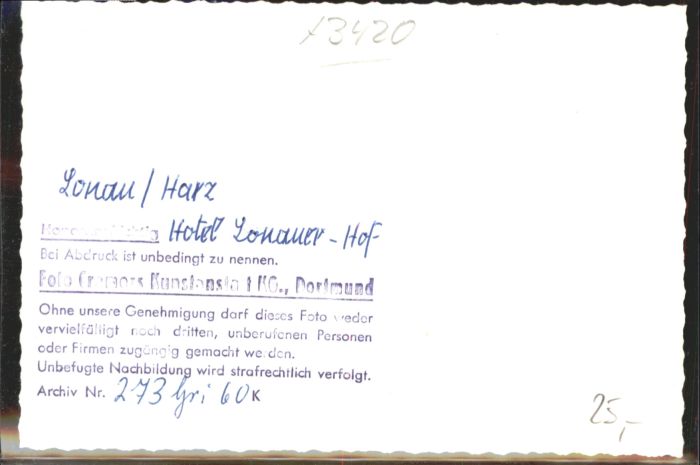 13420
Lonau / Harz
Honorarpflichtig Hotel Lonauer-Hof
Bei Abdruck ist unbedingt zu nennen.
Foto Cramers Kunstanstalt KG., Dortmund
Ohne unsere Genehmigung darf dieses Foto weder
vervielfältigt noch dritten, unberufenen Personen
oder Firmen zugängig gemacht werden.
Unbefugte Nachbildung wird strafrechtlich verfolgt.
Archiv Nr. 273 Gri 60 K
25,-